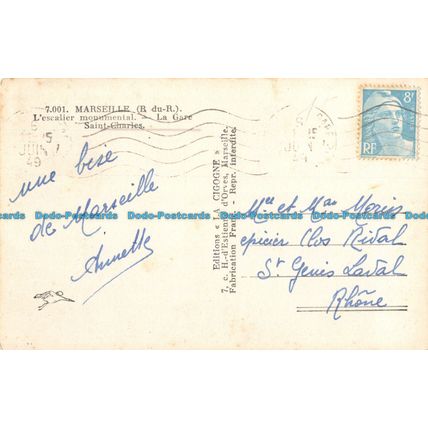 7.001. MARSEILLE (B du-R).
L'escalier monumental. — La Gare
Saint-Charles.
15
JUIN
49
une bise
de Marseille
Annette
Editions « LA CIGOGNE »
7, c. H.-d'Estienne-d'Orves, Marseille.
Fabrication Fran Repr. interdite.
8F
RF
Mr et Mme Morin
épicier Clos Rival
St Genis Laval
Rhône
Dodo-Postcards Dodo-Postcards Dodo-Postcards Dodo-Postcards Dodo-Postcards